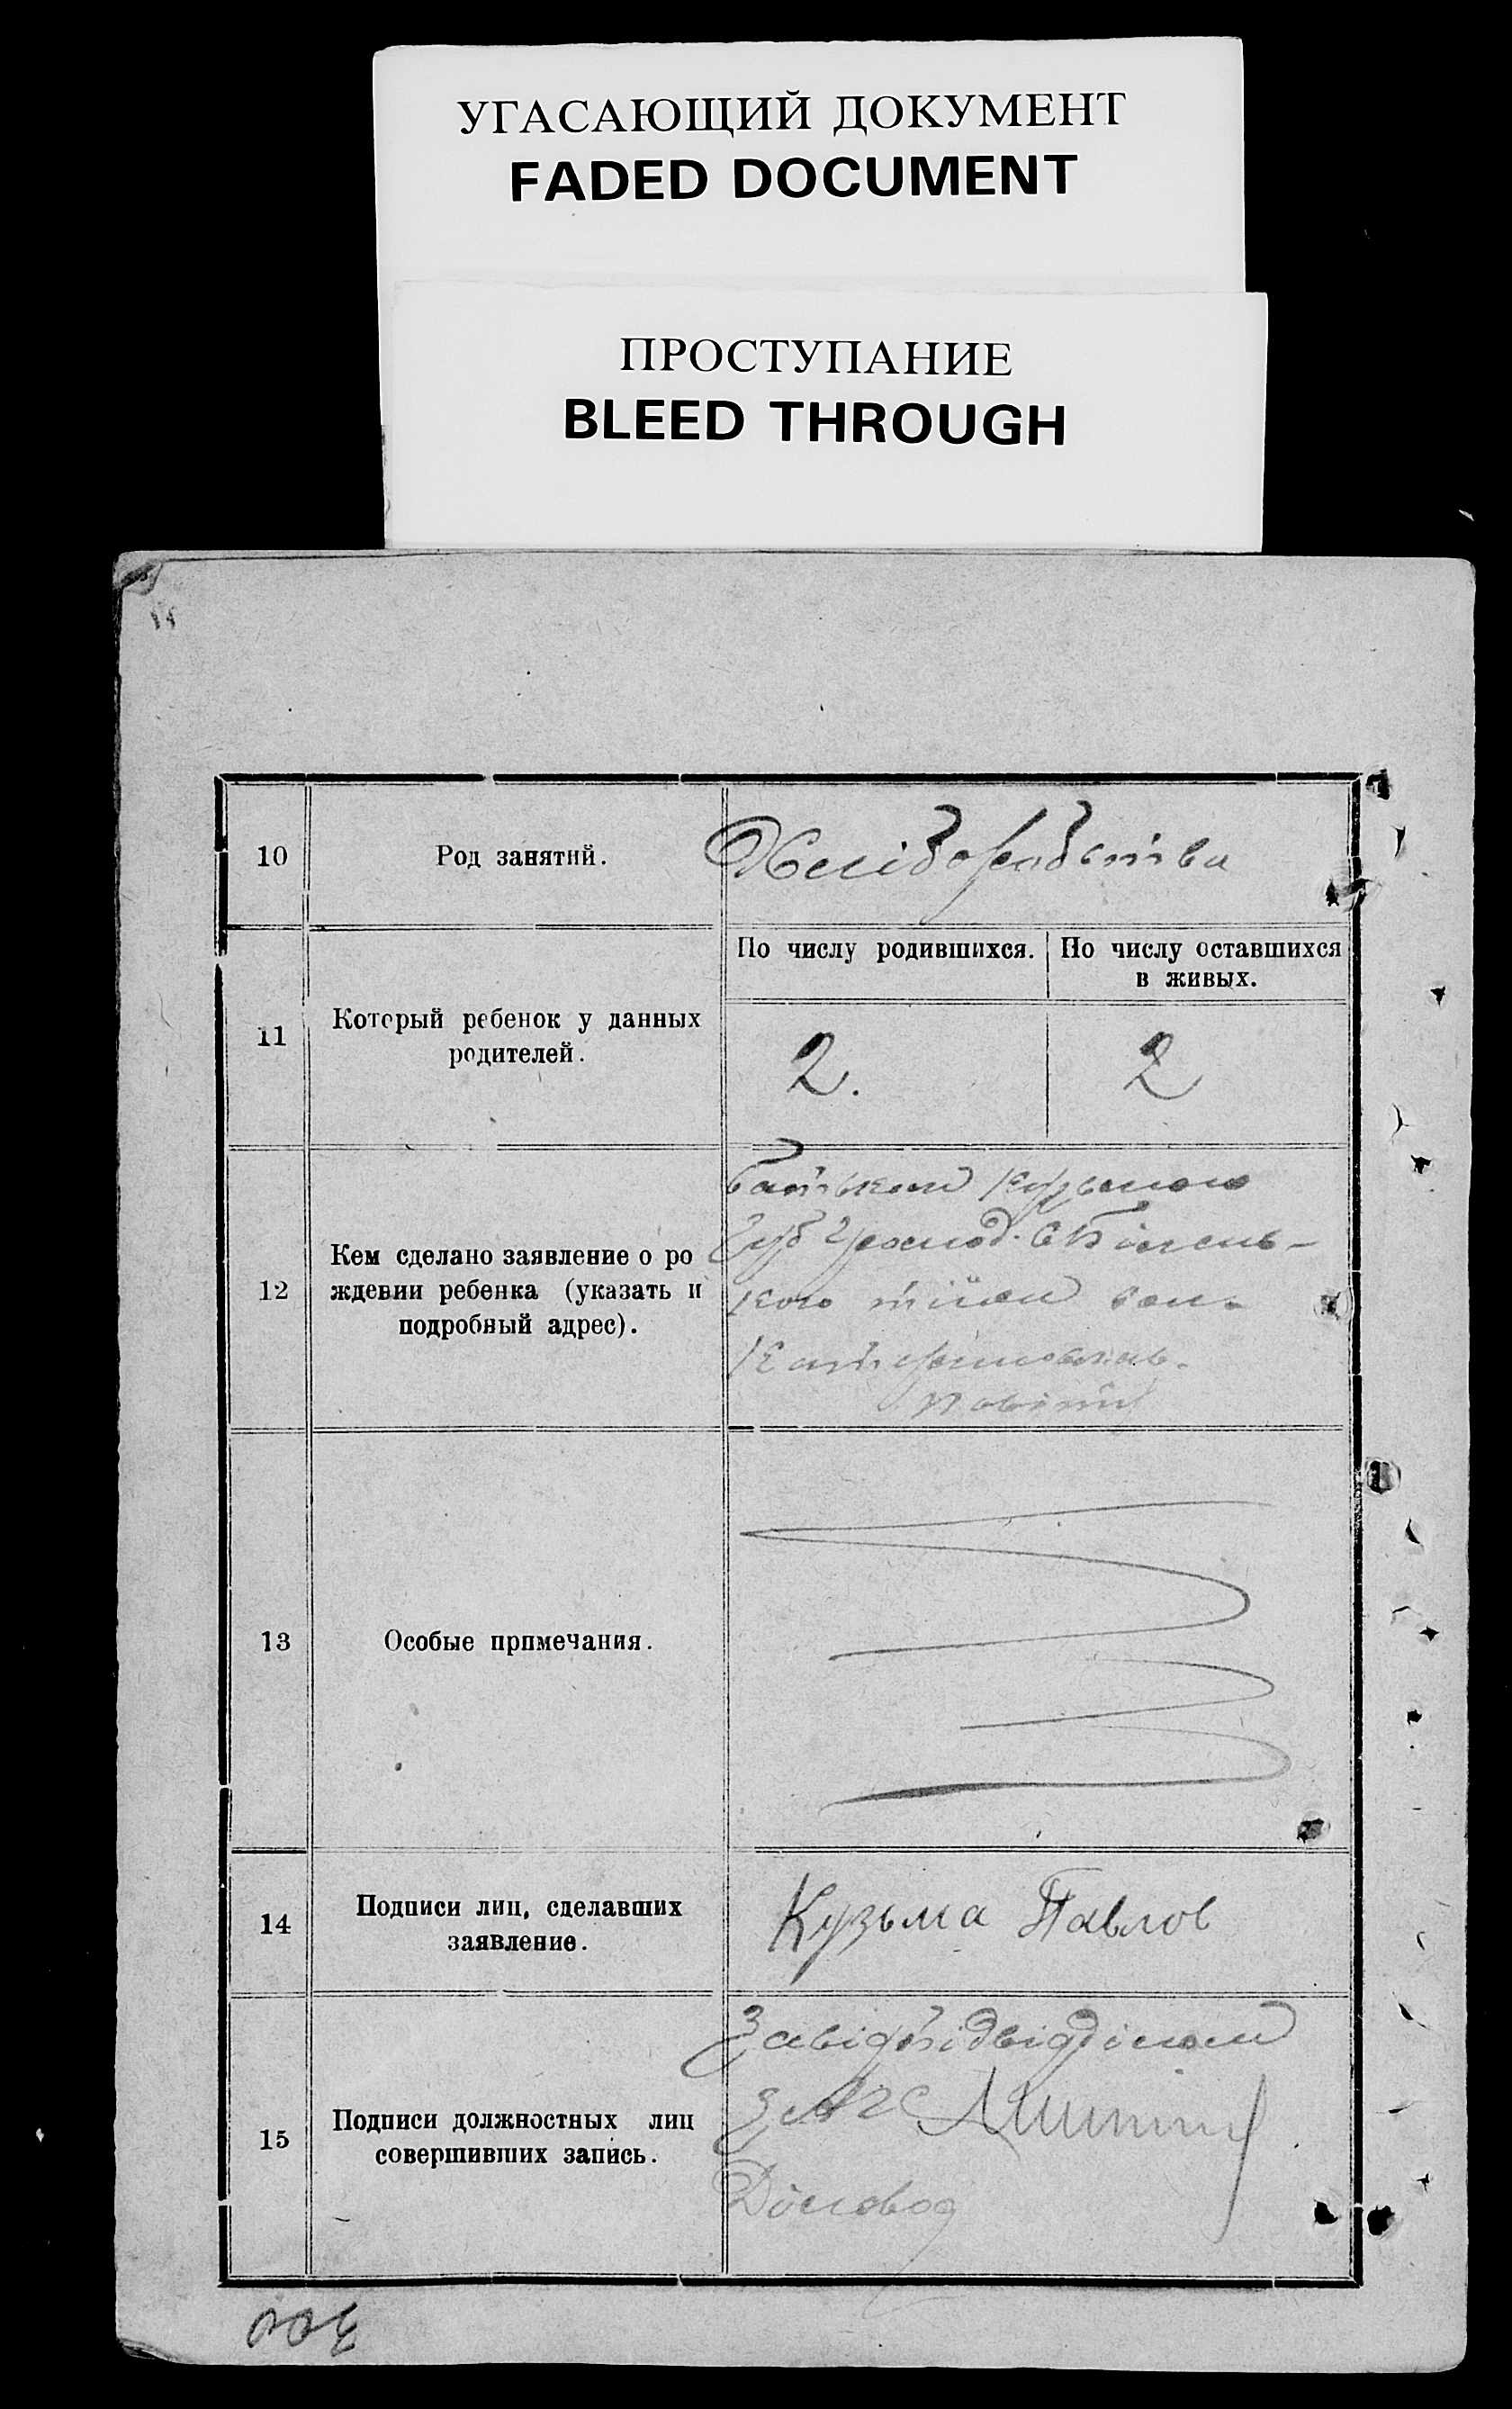 УГАСАЮЩИЙ ДОКУМЕНТ
FADED DOCUMENT
ПРОСТУПАНИЕ
BLEED THROUGH
10
Род занятий.
Хліборобства
По числу родившихся.
По числу оставшихся
в живых.
11
Который ребенок у данных
родителей.
2.
2
12
Кем сделано заявление о ро
ждении ребенка (указать и
подробный адрес).
Батьком Кузьмою
кого
повіту
13
Особые примечания.
14
Подписи лиц, сделавших
заявление.
Кузьма Павлов
15
Подписи должностных лиц
совершивших запись.
Завідпідвідділом
ЗАГС
Діловод